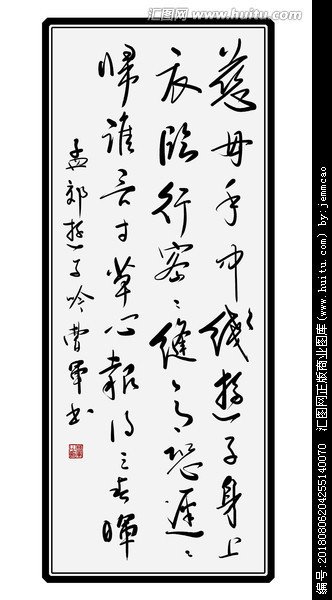 汇图网 www.huitu.com
慈母手中线游子身上
衣临行密密缝意恐迟迟
歸谁言寸草心报得三春晖
孟郊游子吟曹军书
编号:20180806204255140070 汇图网正版商业图库(www.huitu.com) by:jemncao